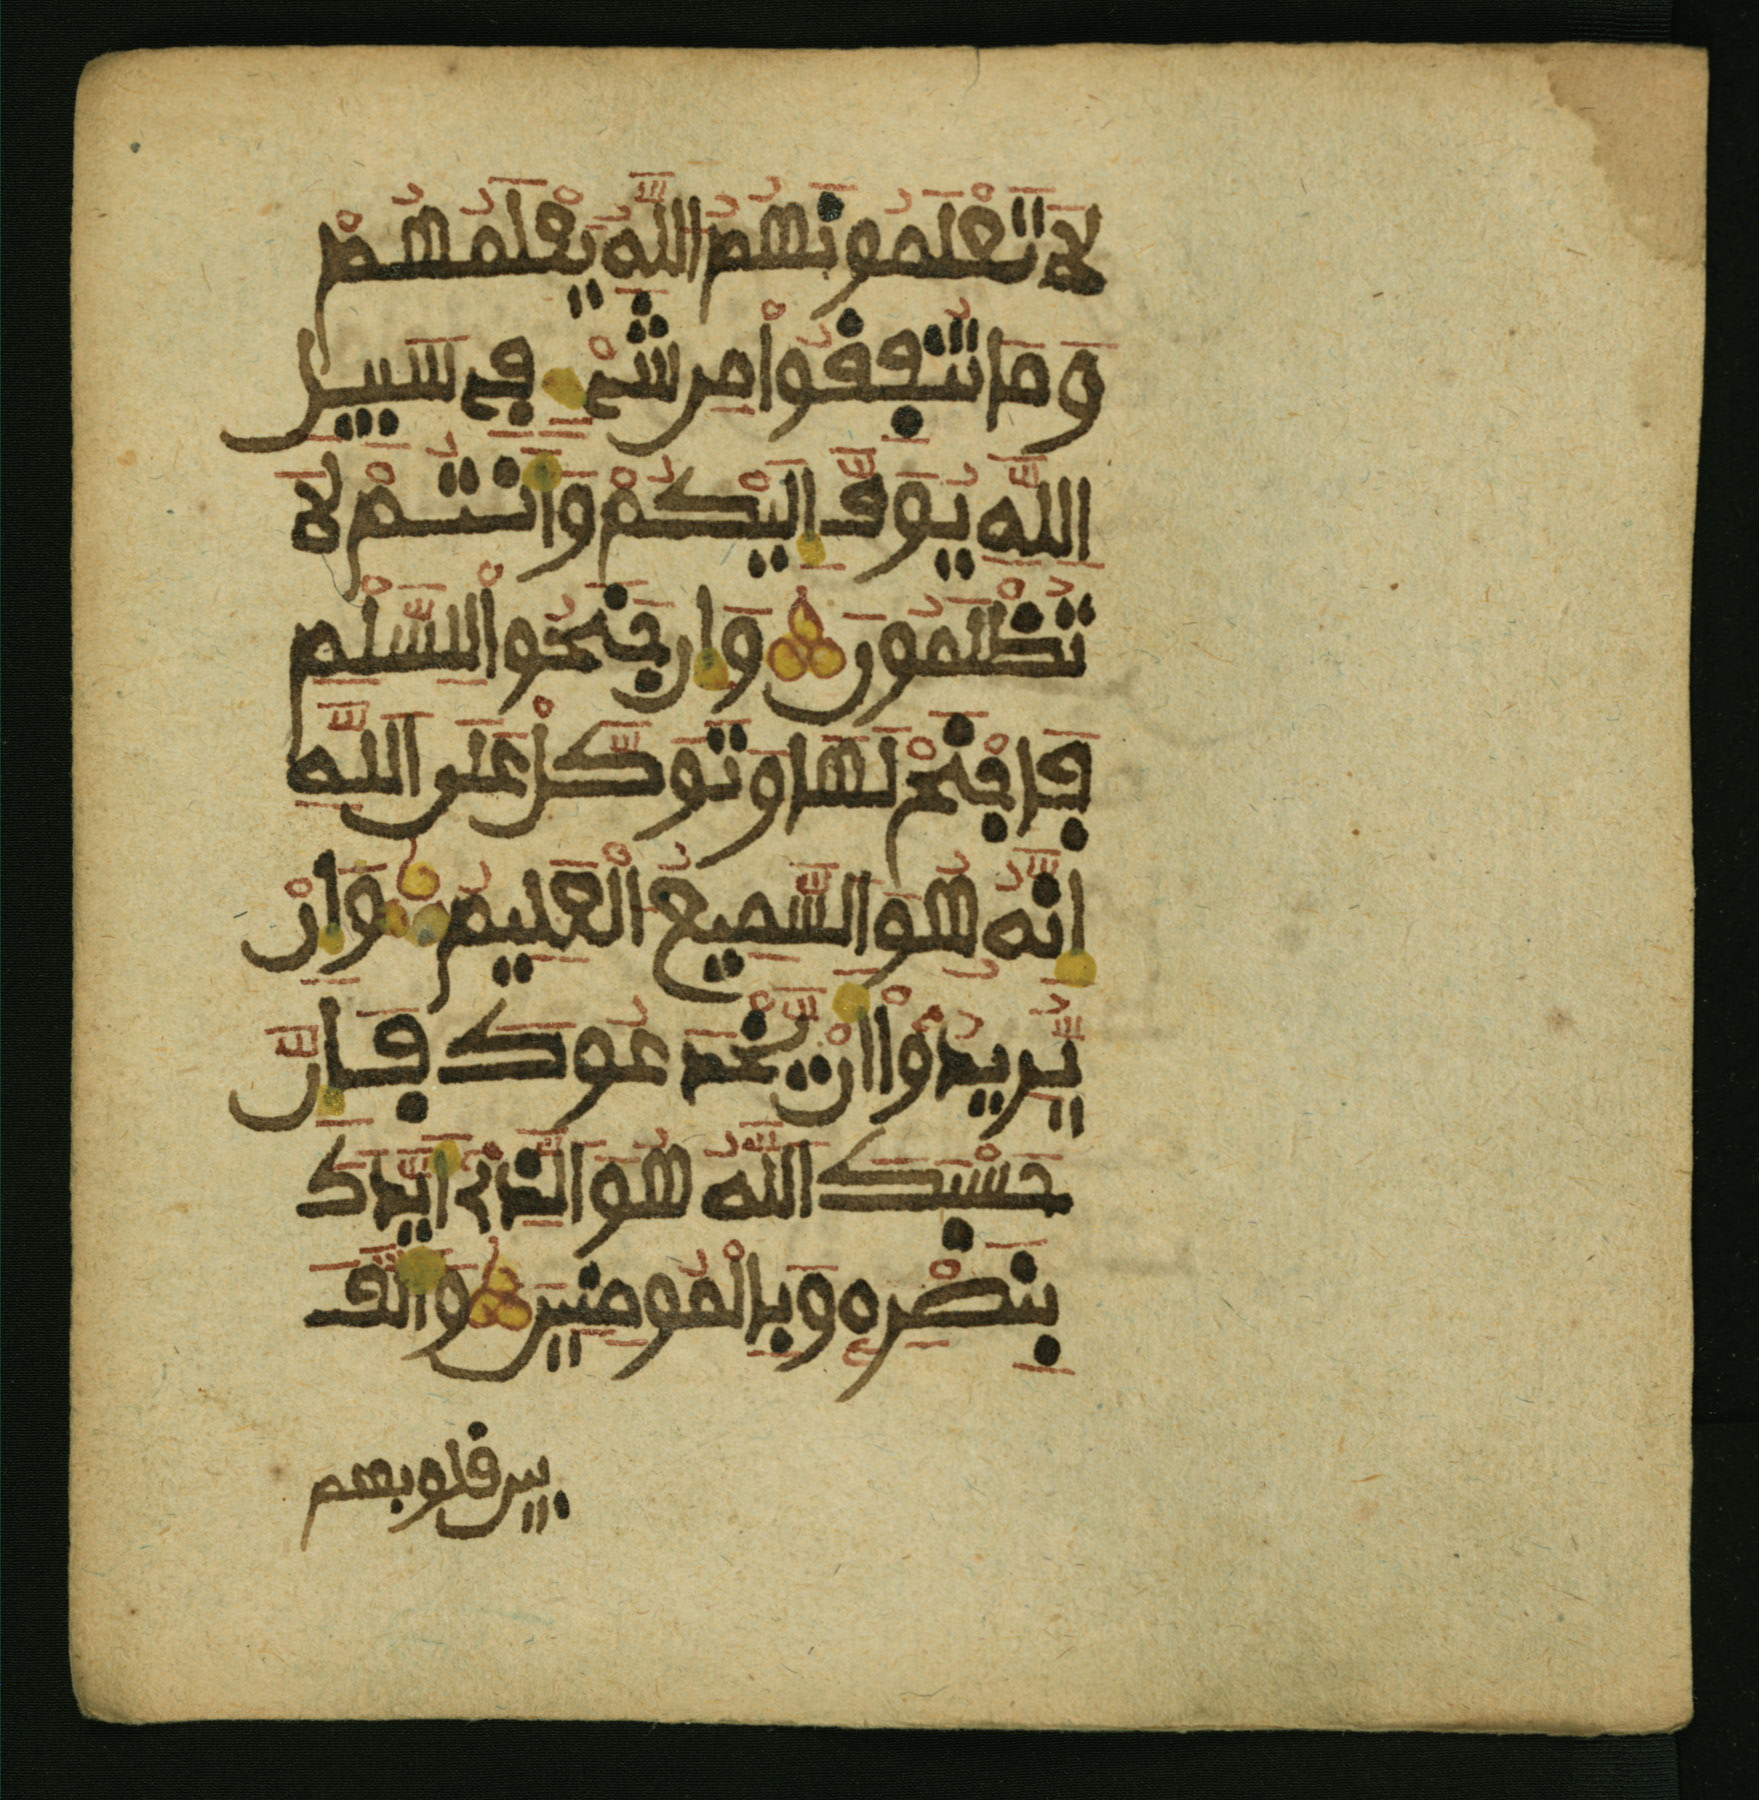 لَا تَعْلَمُونَهُمُ اللَّهُ يَعْلَمُهُمْ
وَمَا تُنفِقُواْ مِن شَيْءٍ فِي سَبِيلِ
اللَّهِ يُوَفَّ إِلَيْكُمْ وَأَنتُمْ لَا
تُظْلَمُونَ وَإِن جَنَحُواْ لِلسَّلْمِ
فَاجْنَحْ لَهَا وَتَوَكَّلْ عَلَى اللَّهِ
إِنَّهُ هُوَ السَّمِيعُ الْعَلِيمُ وَإِنْ
يُّرِيدُواْ أَنْ يَّخْدَعُوكَ فَإِنَّ
حَسْبَكَ اللَّهُ هُوَ الَّذِي أَيَّدَكَ
بِنَصْرِهِ وَبِالْمُومِنِينَ وَأَلَّفَ
بين قلوبهم